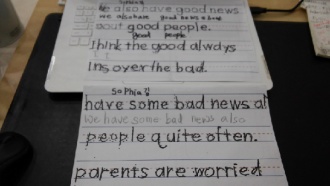 Sophia
We also have good news
we also have good news a bout
bout good people.
good people
Ihink the good always
Ins over the bad.
Sophia
have some bad news al
We have some bad news also
people quite often.
parents are worried